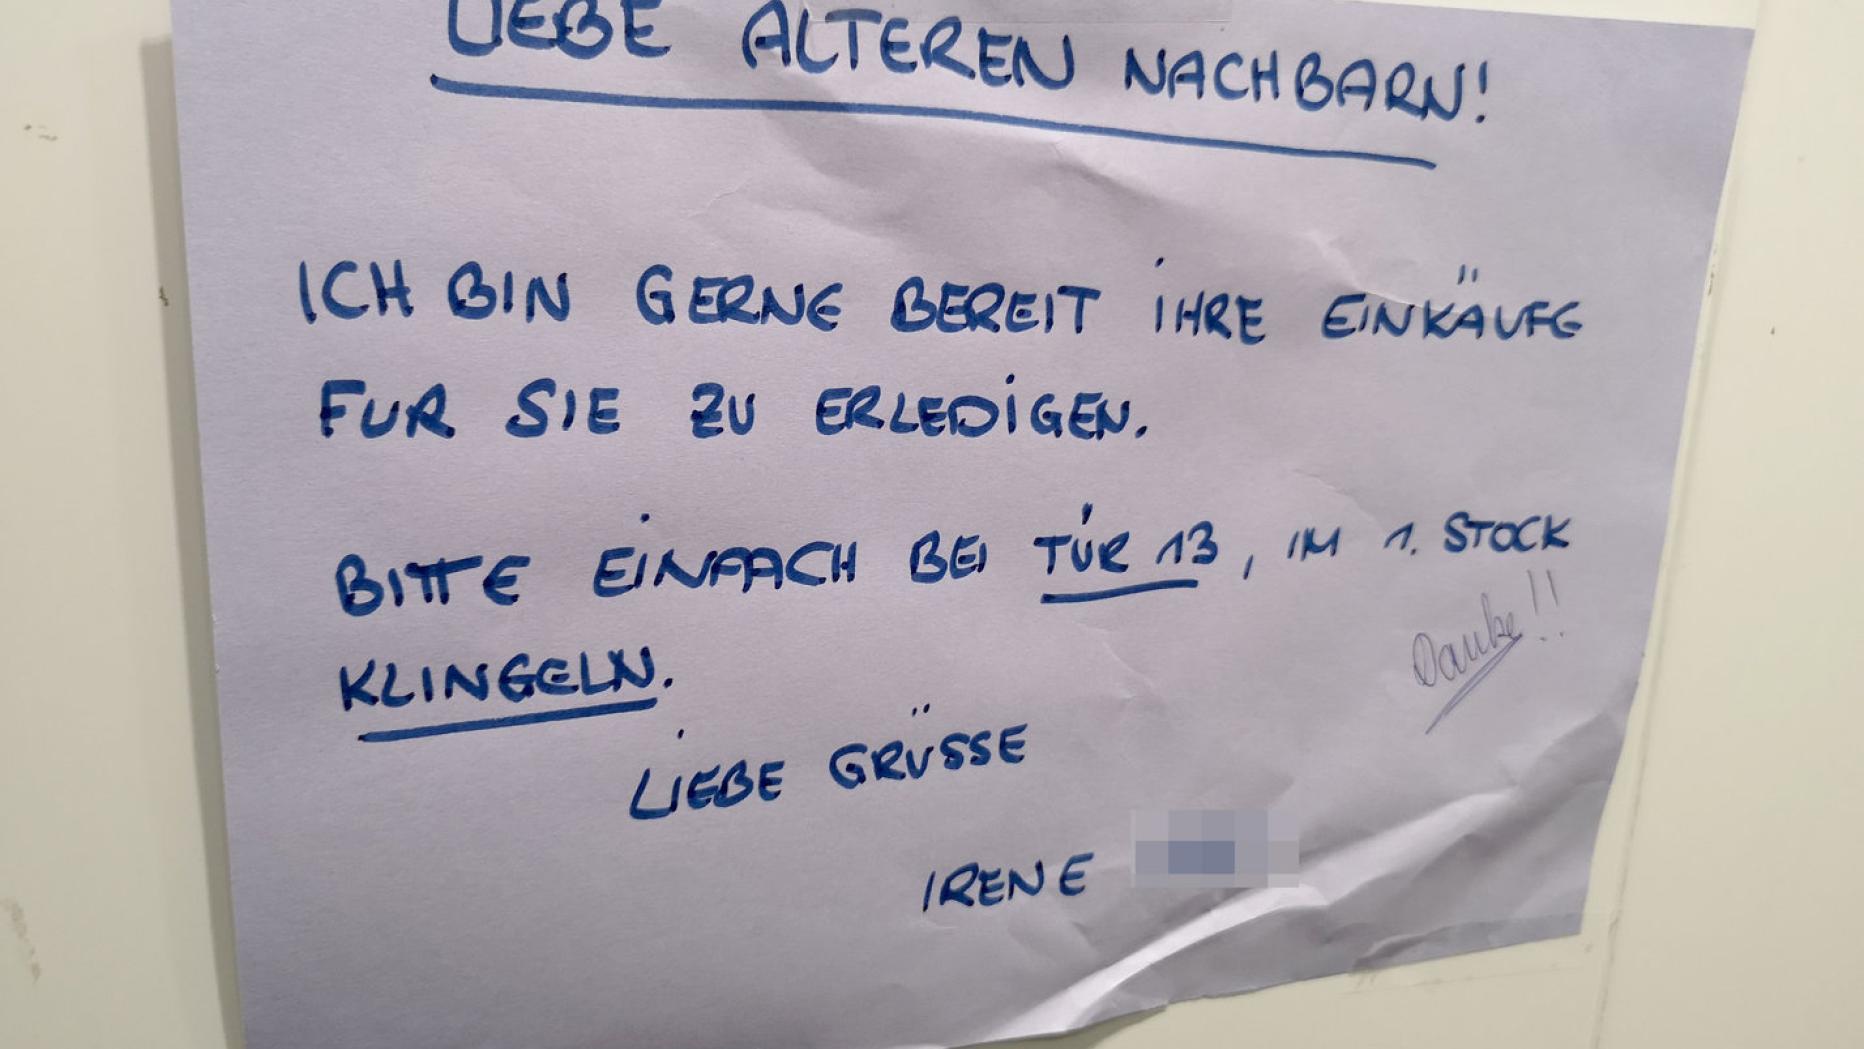 LIEBE ALTEREN NACHBARN!
ICH BIN GERNE BEREIT IHRE EINKÄUFE
FUR SIE ZU ERLEDIGEN.
BITTE EINFACH BEI TÜR 13, IM 1. STOCK
KLINGELN.
Danke!!
LIEBE GRÜSSE
IRENE